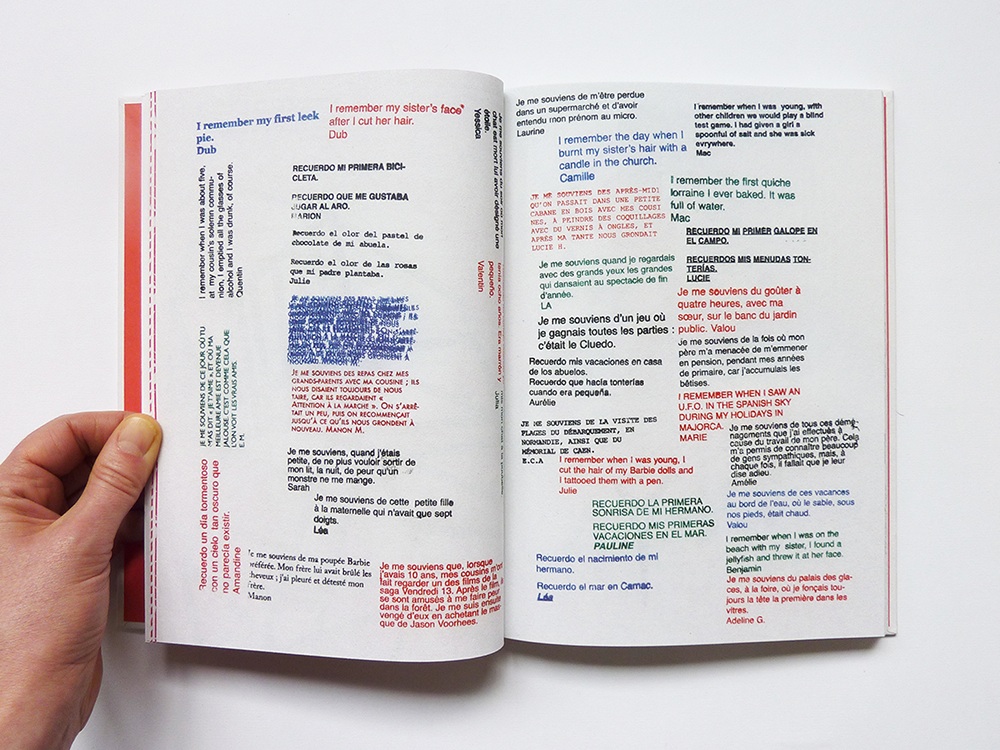 I remember my first leek
pie.
Dub
I remember my sister's face
after I cut her hair.
Dub
I remember when I was about five,
at my cousin's solemn commu-
nion, I emptied all the glasses of
alcohol and I was drunk, of course.
Quentin
RECUERDO MI PRIMERA BICI-
CLETA.
RECUERDO QUE ME GUSTABA
JUGAR AL ARO.
MARION
Recuerdo el olor del pastel de
chocolate de mi abuela.
Recuerdo el olor de las rosas
que mi padre plantaba.
Julie
JE ME SOUVIENS DES REPAS CHEZ MES
GRANDS-PARENTS AVEC MA COUSINE ; ILS
NOUS DISAIENT TOUJOURS DE NOUS
TAIRE, CAR ILS REGARDAIENT «
ATTENTION À LA MARCHE ». ON S'ARRÊ-
TAIT UN PEU, PUIS ON RECOMMENÇAIT
JUSQU'À CE QU'ILS NOUS GRONDENT À
NOUVEAU. MANON M.
JE ME SOUVIENS DE CE JOUR OÙ TU
M'AS DIT « JE T'AIME » ET OÙ MA
MEILLEURE AMIE EST DEVENUE
JALOUSE. C'EST COMME CELA QUE
L'ON VOIT LES VRAIS AMIS.
E.M.
Je me souviens, quand j'étais
petite, de ne plus vouloir sortir de
mon lit, la nuit, de peur qu'un
monstre ne me mange.
Sarah
Je me souviens de cette petite fille
à la maternelle qui n'avait que sept
doigts.
Léa
Recuerdo un día tormentoso
con un cielo tan oscuro que
no parecía existir.
Amandine
Je me souviens de ma poupée Barbie
préférée. Mon frère lui avait brûlé les
cheveux ; j'ai pleuré et détesté mon
frère.
Manon
Je me souviens que, lorsque
j'avais 10 ans, mes cousins m'ont
fait regarder un des films de la
saga Vendredi 13. Après le film, ils
se sont amusés à me faire peur
dans la forêt. Je me suis ensuite
vengé d'eux en achetant le mas-
que de Jason Voorhees.
chat est mort lui avoir désigné une
étoile.
Yessica
pequeña.
Valentin
Je me souviens de m'être perdue
dans un supermarché et d'avoir
entendu mon prénom au micro.
Laurine
I remember when I was young, with
other children we would play a blind
test game. I had given a girl a
spoonful of salt and she was sick
evrywhere.
Mac
I remember the day when I
burnt my sister's hair with a
candle in the church.
Camille
JE ME SOUVIENS DES APRÈS-MIDI
QU'ON PASSAIT DANS UNE PETITE
CABANE EN BOIS AVEC MES COUSI
NES, À PEINDRE DES COQUILLAGES
AVEC DU VERNIS À ONGLES, ET
APRÈS MA TANTE NOUS GRONDAIT
LUCIE H.
I remember the first quiche
lorraine I ever baked. It was
full of water.
Mac
RECUERDO MI PRIMER GALOPE EN
EL CAMPO.
RECUERDOS MIS MENUDAS TON-
TERÍAS.
LUCIE
Je me souviens quand je regardais
avec des grands yeux les grandes
qui dansaient au spectacle de fin
d'année.
LA
Je me souviens du goûter à
quatre heures, avec ma
sœur, sur le banc du jardin
public. Valou
Je me souviens d'un jeu où
je gagnais toutes les parties :
c'était le Cluedo.
Je me souviens de la fois où mon
père m'a menacée de m'emmener
en pension, pendant mes années
de primaire, car j'accumulais les
bêtises.
Recuerdo mis vacaciones en casa
de los abuelos.
Recuerdo que hacía tonterías
cuando era pequeña.
Aurélie
I REMEMBER WHEN I SAW AN
U.F.O. IN THE SPANISH SKY
DURING MY HOLIDAYS IN
MAJORCA.
MARIE
JE ME SOUVIENS DE LA VISITE DES
PLAGES DU DÉBARQUEMENT, EN
NORMANDIE, AINSI QUE DU
MÉMORIAL DE CAEN.
E.C.A
Je me souviens de tous ces démé-
nagements que j'ai effectués à
cause du travail de mon père. Cela
m'a permis de connaître beaucoup
de gens sympathiques, mais, à
chaque fois, il fallait que je leur
dise adieu.
Amélie
I remember when I was young, I
cut the hair of my Barbie dolls and
I tattooed them with a pen.
Julie
RECUERDO LA PRIMERA
SONRISA DE MI HERMANO.
RECUERDO MIS PRIMERAS
VACACIONES EN EL MAR.
PAULINE
Je me souviens de ces vacances
au bord de l'eau, où le sable, sous
nos pieds, était chaud.
Valou
I remember when I was on the
beach with my sister, I found a
jellyfish and threw it at her face.
Benjamin
Recuerdo el nacimiento de mi
hermano.
Recuerdo el mar en Carnac.
Léa
Je me souviens du palais des gla-
ces, à la foire, où je fonçais tou-
jours la tête la première dans les
vitres.
Adeline G.